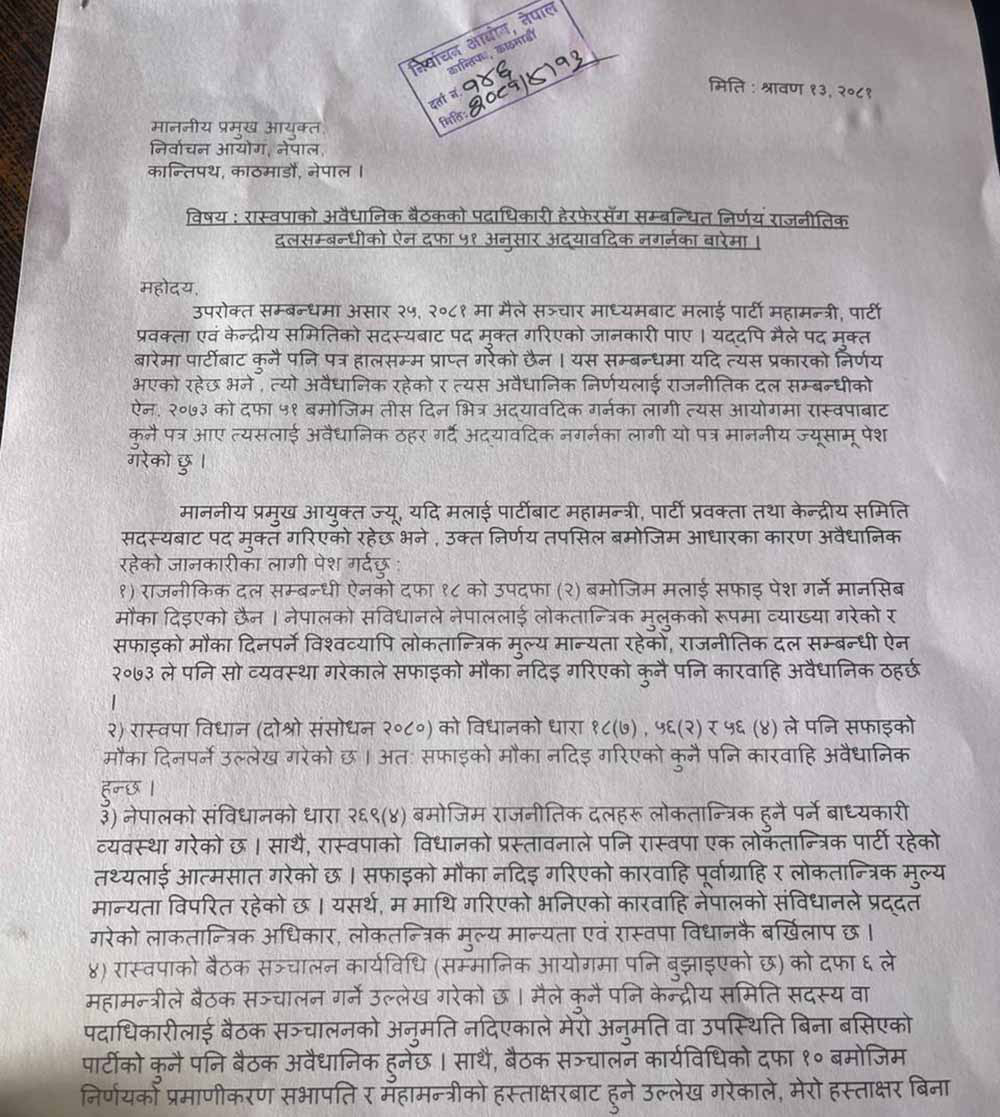 निर्वाचन आयोग, नेपाल
कान्तिपथ, काठमाडौं
दर्ता नं. १४६
मिति: २०८१/४/१३
मिति : श्रावण १३, २०८१
माननीय प्रमुख आयुक्त,
निर्वाचन आयोग, नेपाल,
कान्तिपथ, काठमाडौं, नेपाल ।
विषय : रास्वपाको अवैधानिक बैठकको पदाधिकारी हेरफेरसँग सम्बन्धित निर्णय राजनीतिक
दलसम्बन्धीको ऐन दफा ५१ अनुसार अद्यावदिक नगर्नका बारेमा ।
महोदय,
उपरोक्त सम्बन्धमा असार २५, २०८१ मा मैले सञ्चार माध्यमबाट मलाई पार्टी महामन्त्री, पार्टी
प्रवक्ता एवं केन्द्रीय समितिको सदस्यबाट पद मुक्त गरिएको जानकारी पाए । यद्दपि मैले पद मुक्त
बारेमा पार्टीबाट कुनै पनि पत्र हालसम्म प्राप्त गरेको छैन । यस सम्बन्धमा यदि त्यस प्रकारको निर्णय
भएको रहेछ भने , त्यो अवैधानिक रहेको र त्यस अवैधानिक निर्णयलाई राजनीतिक दल सम्बन्धीको
ऐन, २०७३ को दफा ५१ बमोजिम तीस दिन भित्र अद्यावदिक गर्नका लागी त्यस आयोगमा रास्वपाबाट
कुनै पत्र आए त्यसलाई अवैधानिक ठहर गर्दै अद्यावदिक नगर्नका लागी यो पत्र माननीय ज्यूसामू पेश
गरेको छु ।
माननीय प्रमुख आयुक्त ज्यू, यदि मलाई पार्टीबाट महामन्त्री, पार्टी प्रवक्ता तथा केन्द्रीय समिति
सदस्यबाट पद मुक्त गरिएको रहेछ भने , उक्त निर्णय तपसिल बमोजिम आधारका कारण अवैधानिक
रहेको जानकारीका लागी पेश गर्दछु :
१) राजनीकिक दल सम्बन्धी ऐनको दफा १८ को उपदफा (२) बमोजिम मलाई सफाइ पेश गर्ने मानसिब
मौका दिइएको छैन । नेपालको संविधानले नेपाललाई लोकतान्त्रिक मुलुकको रूपमा व्याख्या गरेको र
सफाइको मौका दिनपर्ने विश्वव्यापि लोकतान्त्रिक मुल्य मान्यता रहेको, राजनीतिक दल सम्बन्धी ऐन
२०७३ ले पनि सो व्यवस्था गरेकाले सफाइको मौका नदिइ गरिएको कुनै पनि कारवाहि अवैधानिक ठहर्छ
।
२) रास्वपा विधान (दोश्रो संसोधन २०८०) को विधानको धारा १८(७) , ५६(२) र ५६ (४) ले पनि सफाइको
मौका दिनपर्ने उल्लेख गरेको छ । अत: सफाइको मौका नदिइ गरिएको कुनै पनि कारवाहि अवैधानिक
हुन्छ ।
३) नेपालको संविधानको धारा २६९(४) बमोजिम राजनीतिक दलहरू लोकतान्त्रिक हुनै पर्ने बाध्यकारी
व्यवस्था गरेको छ । साथै, रास्वपाको विधानको प्रस्तावनाले पनि रास्वपा एक लोकतान्त्रिक पार्टी रहेको
तथ्यलाई आत्मसात गरेको छ । सफाइको मौका नदिइ गरिएको कारवाहि पूर्वाग्राहि र लोकतान्त्रिक मुल्य
मान्यता विपरित रहेको छ । यसर्थ, म माथि गरिएको भनिएको कारवाहि नेपालको संविधानले प्रद्दत
गरेको लाकतान्त्रिक अधिकार, लोकतन्त्रिक मुल्य मान्यता एवं रास्वपा विधानकै बर्खिलाप छ ।
४) रास्वपाको बैठक सञ्चालन कार्यविधि (सम्मानिक आयोगमा पनि बुझाइएको छ) को दफा ६ ले
महामन्त्रीले बैठक सञ्चालन गर्ने उल्लेख गरेको छ । मैले कुनै पनि केन्द्रीय समिति सदस्य वा
पदाधिकारीलाई बैठक सञ्चालनको अनुमति नदिएकाले मेरो अनुमति वा उपस्थिति बिना बसिएको
पार्टीको कुनै पनि बैठक अवैधानिक हुनेछ । साथै, बैठक सञ्चालन कार्यविधिको दफा १० बमोजिम
निर्णयको प्रमाणीकरण सभापति र महामन्त्रीको हस्ताक्षरबाट हुने उल्लेख गरेकाले, मेरो हस्ताक्षर बिना